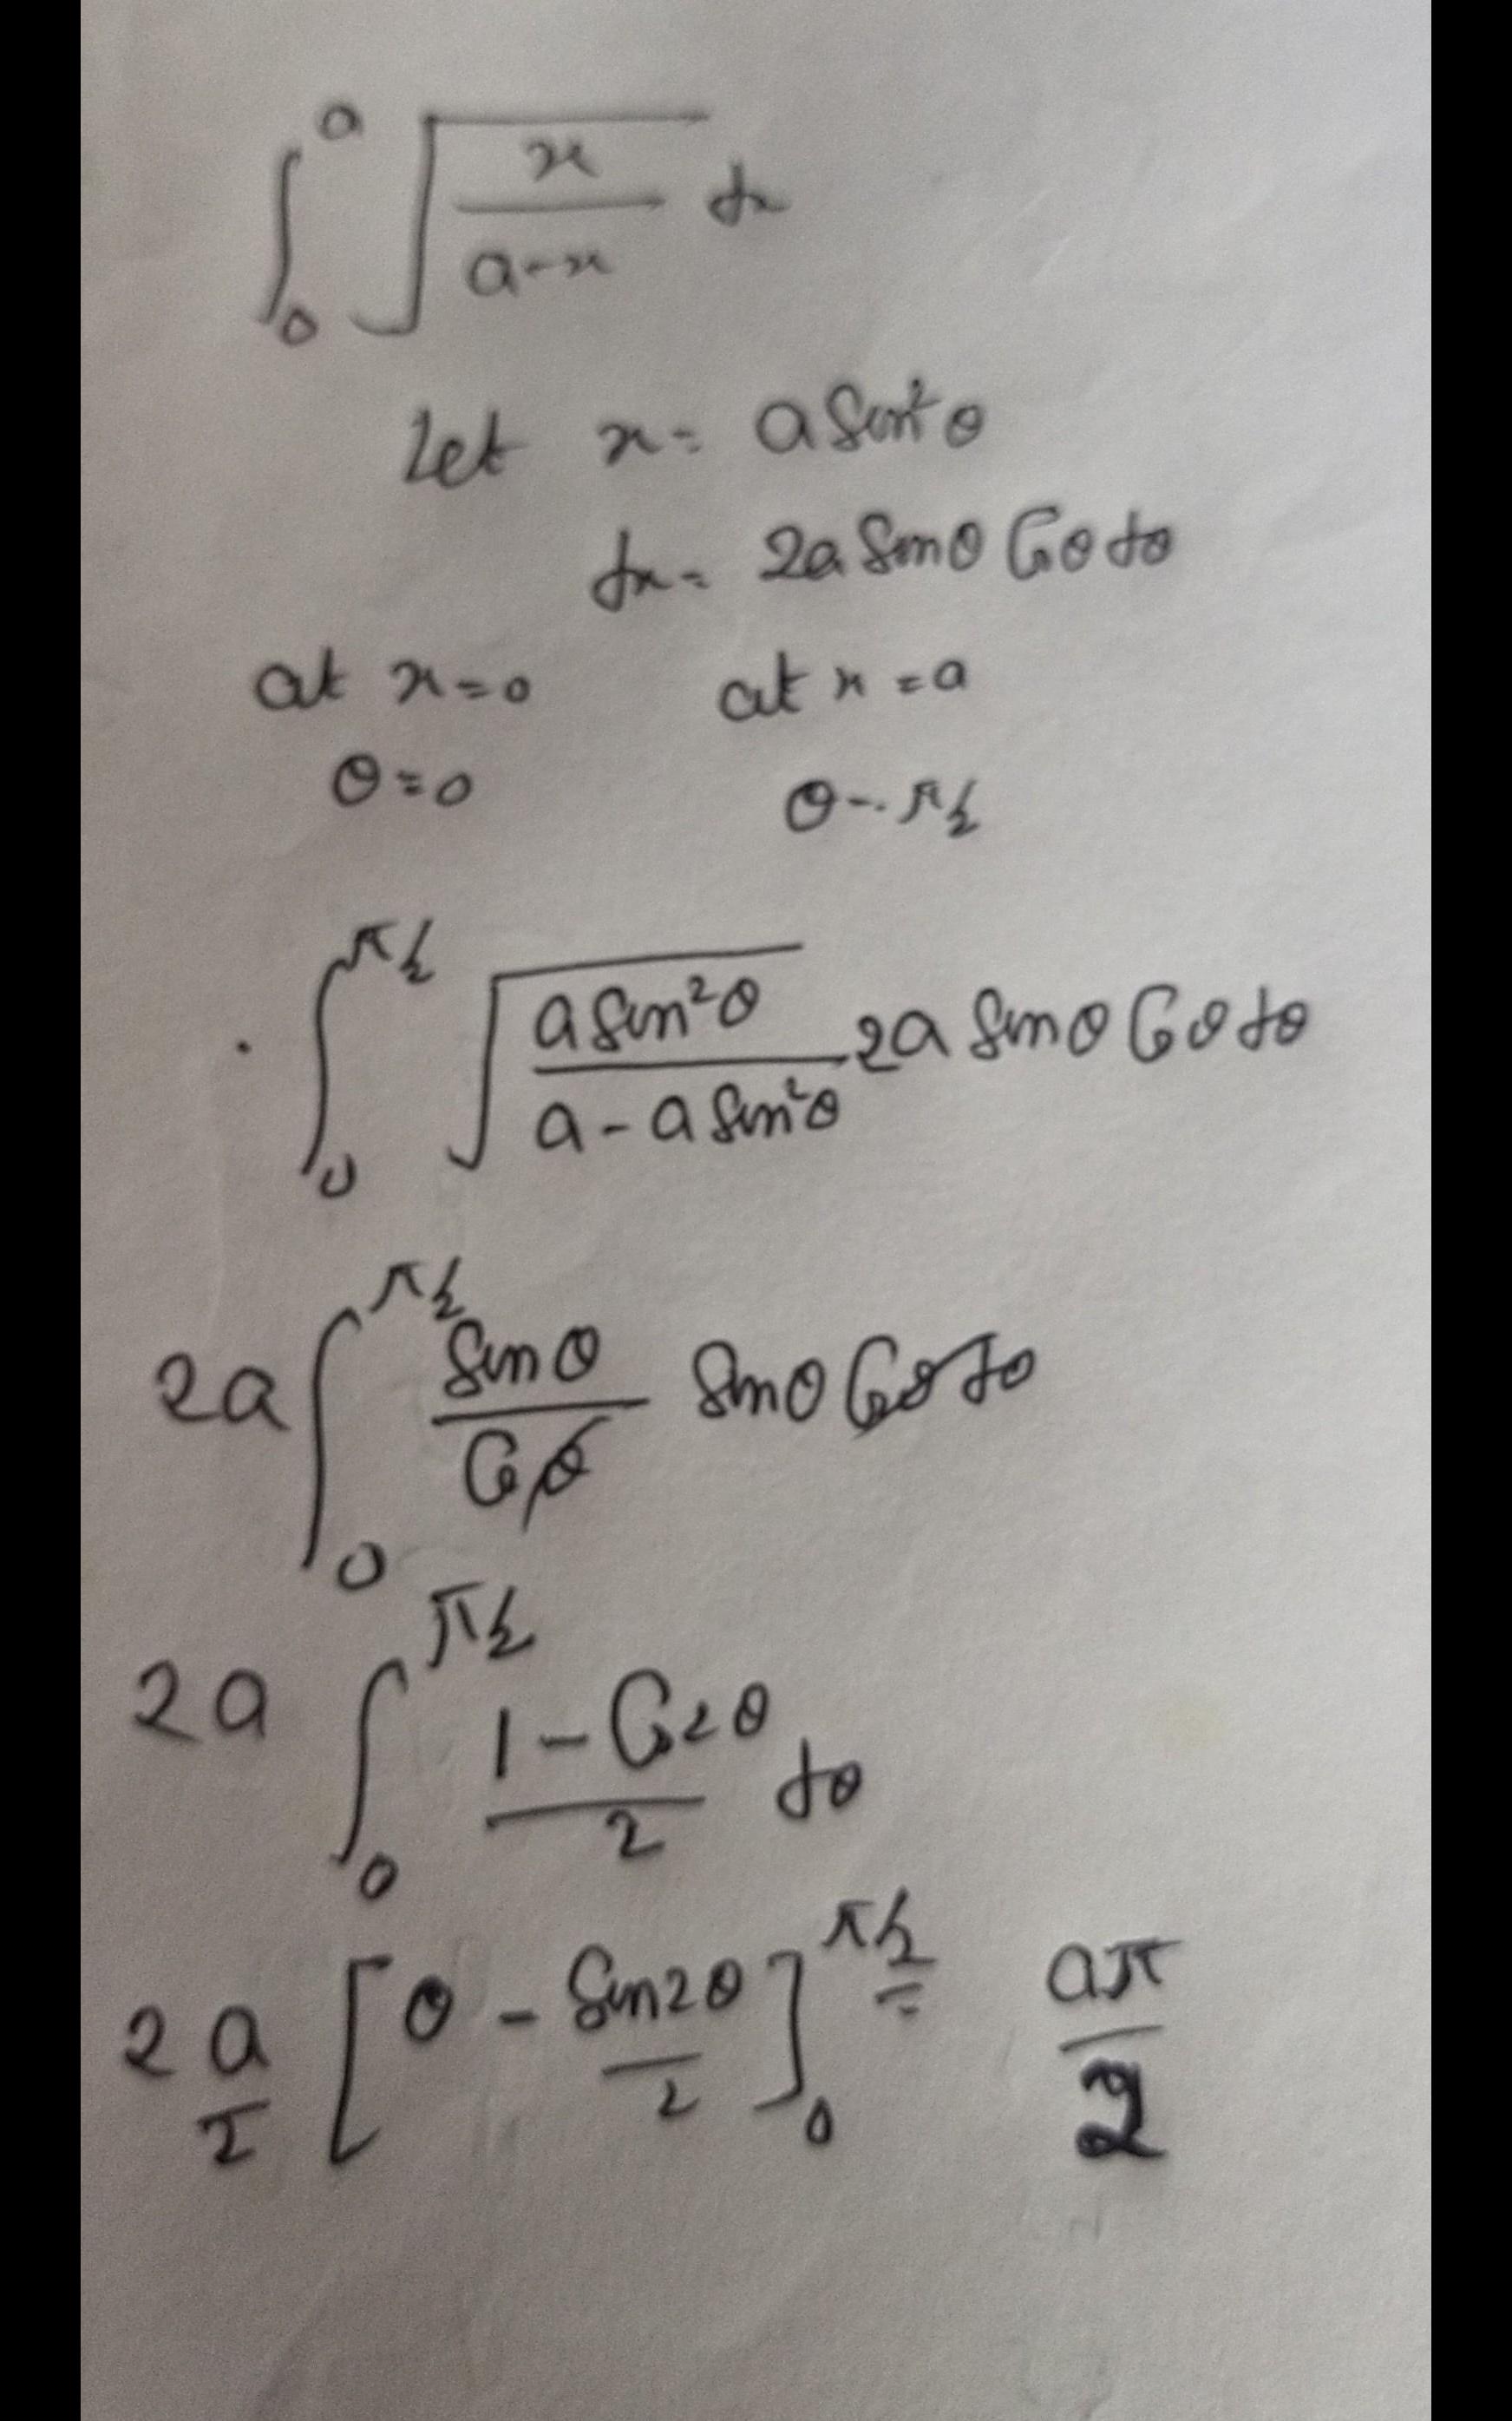 ∫₀ᵃ √(x/(a-x)) dx
Let x = a Sin²θ
dx = 2a Sinθ Cosθ dθ
at x=0 at x=a
θ=0 θ=π/2
∫₀^(π/2) √(a Sin²θ/(a-a Sin²θ)) 2a Sinθ Cosθ dθ
2a ∫₀^(π/2) (Sinθ/Cosθ) Sinθ Cosθ dθ
2a ∫₀^(π/2) (1-Cos2θ)/2 dθ
2a/2 [θ - Sin2θ/2]₀^(π/2) = aπ/2